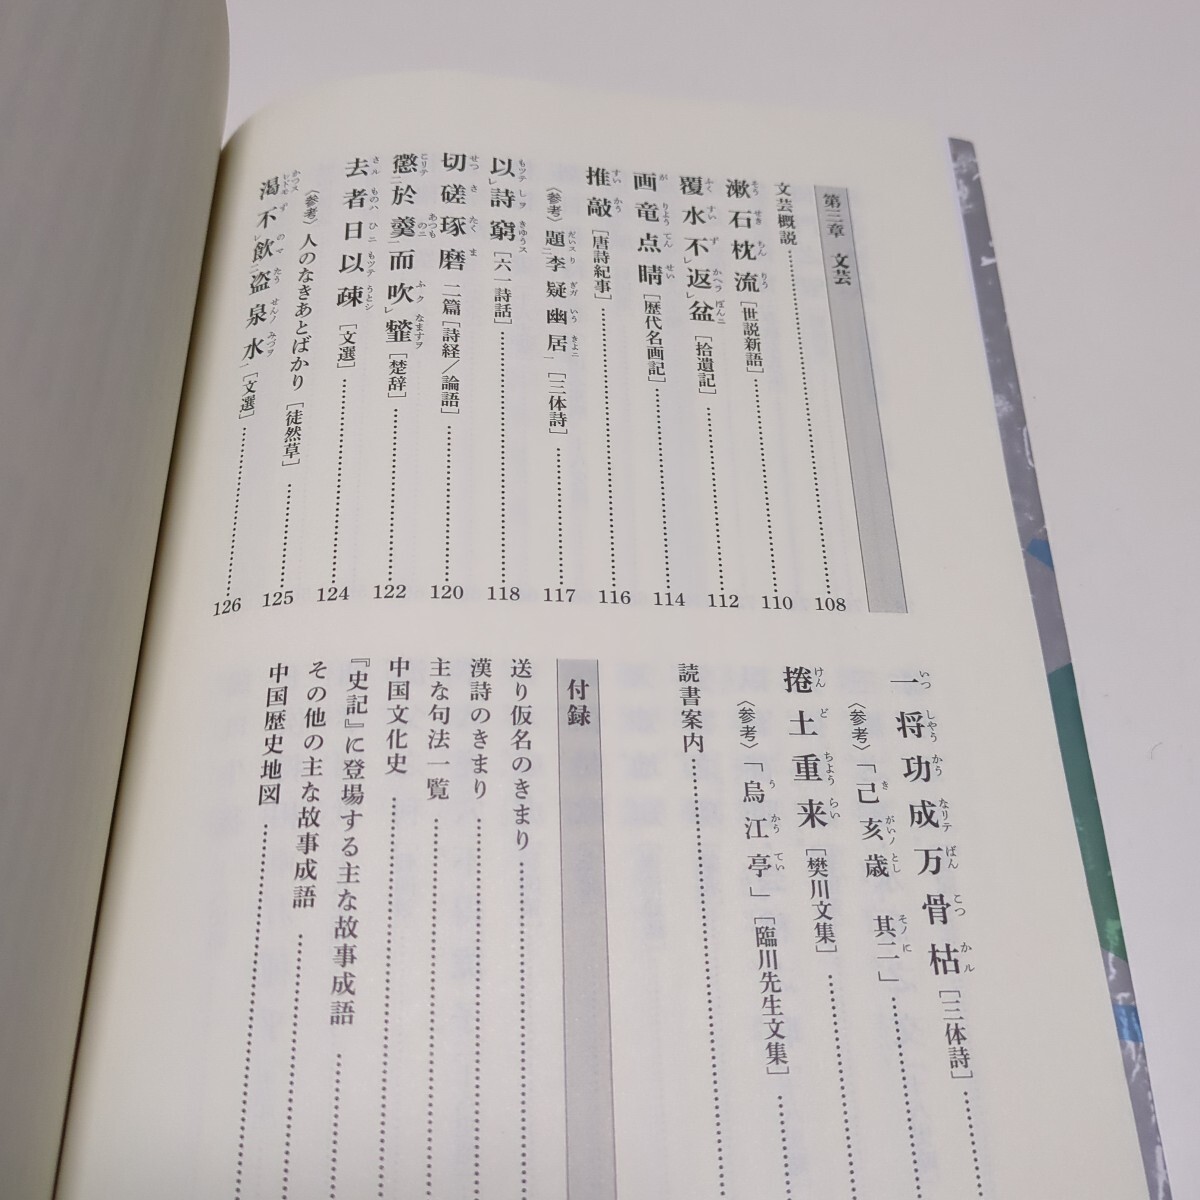 第三章 文芸
文芸概説……108
漱石枕流[世説新語]……110
覆水不返盆[拾遺記]……112
画竜点睛[歴代名画記]……114
推敲[唐詩紀事]……116
〈参考〉題李疑幽居[三体詩]……117
以詩窮[六一詩話]……118
切磋琢磨 二篇[詩経/論語]……120
懲於羹而吹韲[楚辞]……122
去者日以疎[文選]……124
〈参考〉人のなきあとばかり[徒然草]……125
渇不飲盗泉水[文選]……126
一将功成万骨枯[三体詩]……
〈参考〉「己亥歳 其二」……
捲土重来[樊川文集]……
〈参考〉「烏江亭」[臨川先生文集]……
読書案内……
付録
送り仮名のきまり……
漢詩のきまり……
主な句法一覧……
中国文化史……
『史記』に登場する主な故事成語……
その他の主な故事成語……
中国歴史地図……